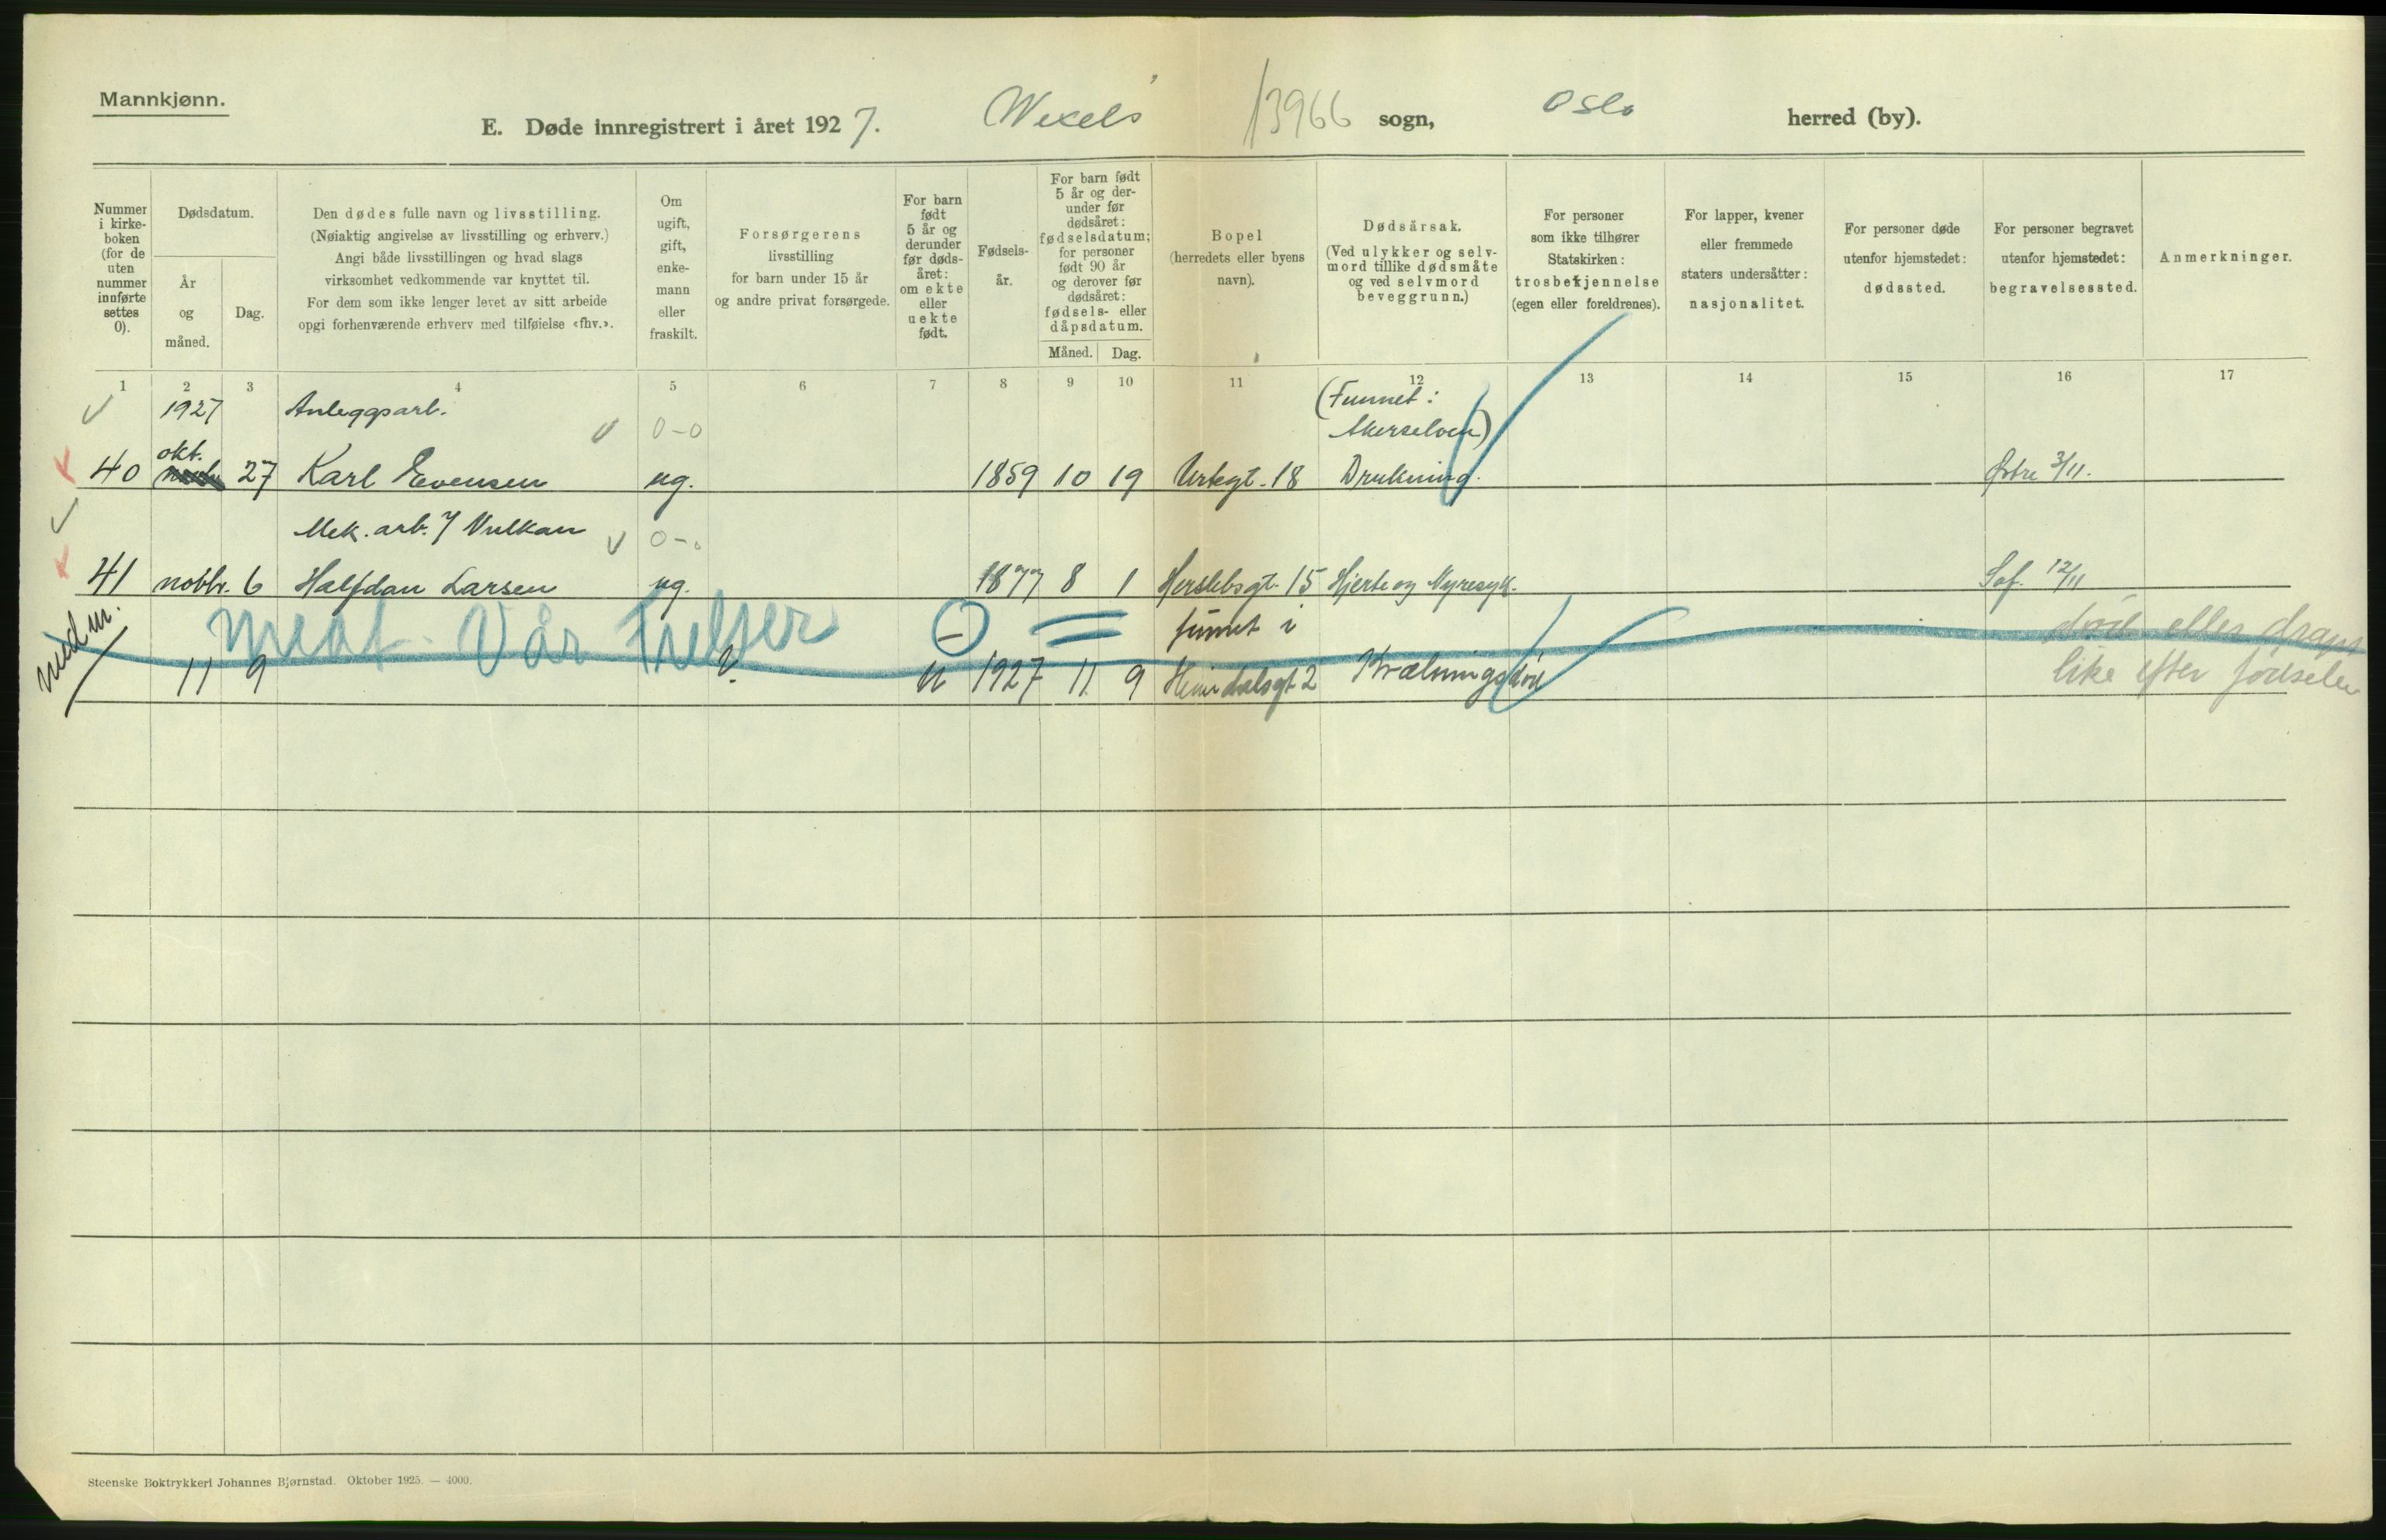 Mannkjønn.
E. Døde innregistrert i året 1927. Wexels 13966 sogn, Oslo herred (by).
Nummer i kirke- boken (for de uten nummer innførte settes 0).
Dødsdatum.
År og måned.
Dag.
Den dødes fulle navn og livsstilling.
(Nøiaktig angivelse av livsstilling og erhverv.)
Angi både livsstillingen og hvad slags
virksomhet vedkommende var knyttet til.
For dem som ikke lenger levet av sitt arbeide
opgi forhenværende erhverv med tilføielse «fhv.».
Om ugift, gift, enke- mann eller fraskilt.
Forsørgerens
livsstilling
for barn under 15 år
og andre privat forsørgede.
For barn født 5 år og derunder før døds- året: om ekte eller uekte født.
Fødsels- år.
For barn født 5 år og der- under før dødsåret: fødselsdatum; for personer født 90 år og derover før dødsåret: fødsels- eller dåpsdatum.
Måned. Dag.
Bopel
(herredets eller byens
navn).
Dødsårsak.
(Ved ulykker og selv-
mord tillike dødsmåte
og ved selvmord
beveggrunn.)
For personer
som ikke tilhører
Statskirken:
trosbekjennelse
(egen eller foreldrenes).
For lapper, kvener
eller fremmede
staters undersåtter:
nasjonalitet.
For personer døde
utenfor hjemstedet:
dødssted.
For personer begravet
utenfor hjemstedet:
begravelsessted.
Anmerkninger.
1 2 3 4 5 6 7 8 9 10 11 12 13 14 15 16 17
1927 Anleggsarb. 0-0 (Funnet: Akerselven)
40 okt. 27 Karl Evensen ug. 1859 10 19 Urtegt. 18 Drukning. Østre 3/11.
Mek. arb. v/ Vulkan 0-0
41 novbr. 6 Halfdan Larsen ug. 1877 8 1 Herslebsgt. 15 Hjerte og Nyresyk. Sof. 12/11
medm. Vår Frelser funnet i død eller drept
11 9 ? u 1927 11 9 Heimdalsgt 2 Kvælningsdød like efter fødselen
Steenske Boktrykkeri Johannes Bjørnstad. Oktober 1925. — 4000.